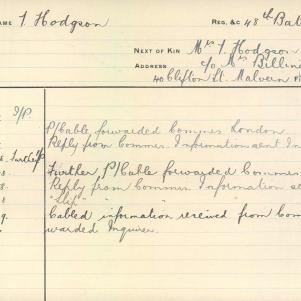 NAME T. Hodgson REG. &C 48th Bat
NEXT OF KIN Mrs T. Hodgson
ADDRESS c/o Mrs Billin
40 Clifton St. Malvern
S/P.
P/Cable forwarded Commes London
Reply from Commes. Information sent In
8. Further P/Cable forwarded Commes
8. Reply from Commes. Information se
8. "Slip"
9. Cabled information received from Com
warded Inquirer.